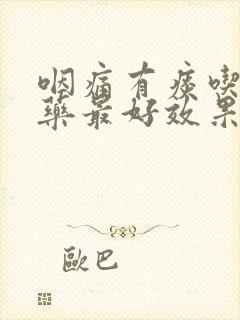 咽痛有痰喫
藥最好效果
歐巴